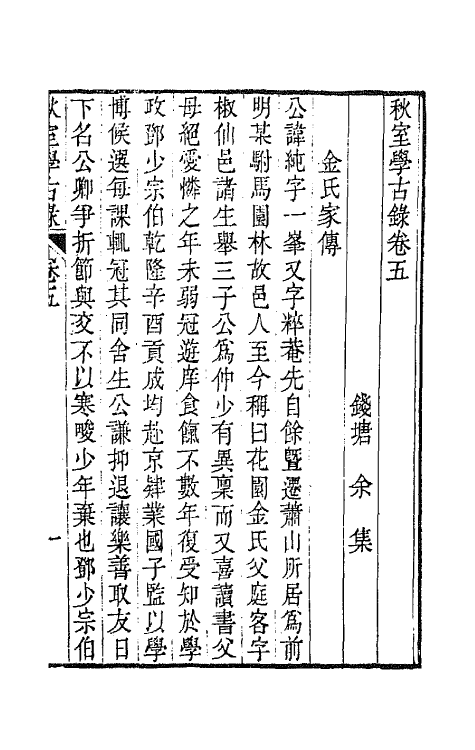 秋室學古錄卷五
錢塘 余集
金氏家傳
公諱純字一峯又字粹菴先自餘曁遷蕭山所居爲前
明某駙馬園林故邑人至今稱曰花園金氏父庭客字
椒仙邑諸生舉三子公爲仲少有異稟而又喜讀書父
母絕愛憐之年未弱冠遊庠食餼不數年復受知於學
政鄧少宗伯乾隆辛酉貢成均赴京肄業國子監以學
博候選每課輒冠其同舍生公謙抑退讓樂善取友日
下名公卿爭折節與交不以寒畯少年棄也鄧少宗伯
秋室學古錄 卷五 一